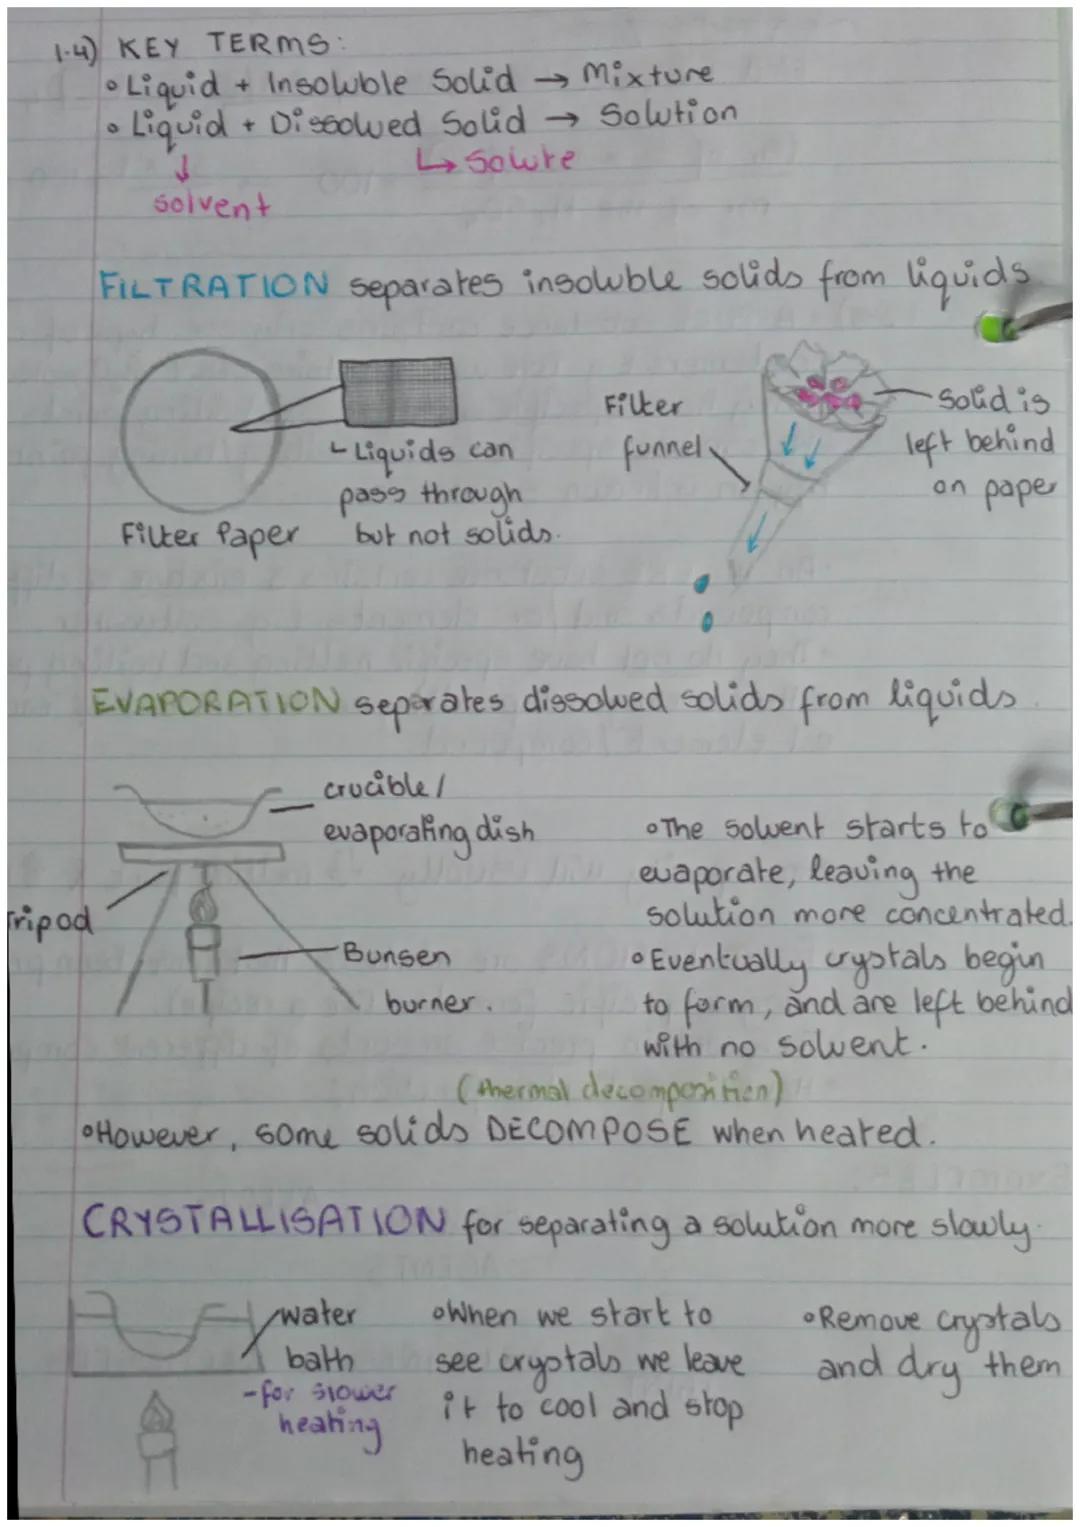 1.4) KEY TERMS:
• Liquid + Insoluble Solid → Mixture
• Liquid + Dissolved Solid → Solution
↓ ↳ Solute
solvent
FILTRATION separates insoluble solids from liquids
Filter Paper
- Liquids can
pass through
but not solids.
Filter
funnel
Solid is
left behind
on paper
EVAPORATION separates dissolved solids from liquids.
crucible /
evaporating dish
Tripod
Bunsen
burner.
• The solvent starts to
evaporate, leaving the
solution more concentrated.
• Eventually crystals begin
to form, and are left behind
with no solvent.
(thermal decomposition)
• However, some solids DECOMPOSE when heated.
CRYSTALLISATION for separating a solution more slowly.
water
bath
- for slower
heating
• When we start to
see crystals we leave
it to cool and stop
heating
• Remove crystals
and dry them